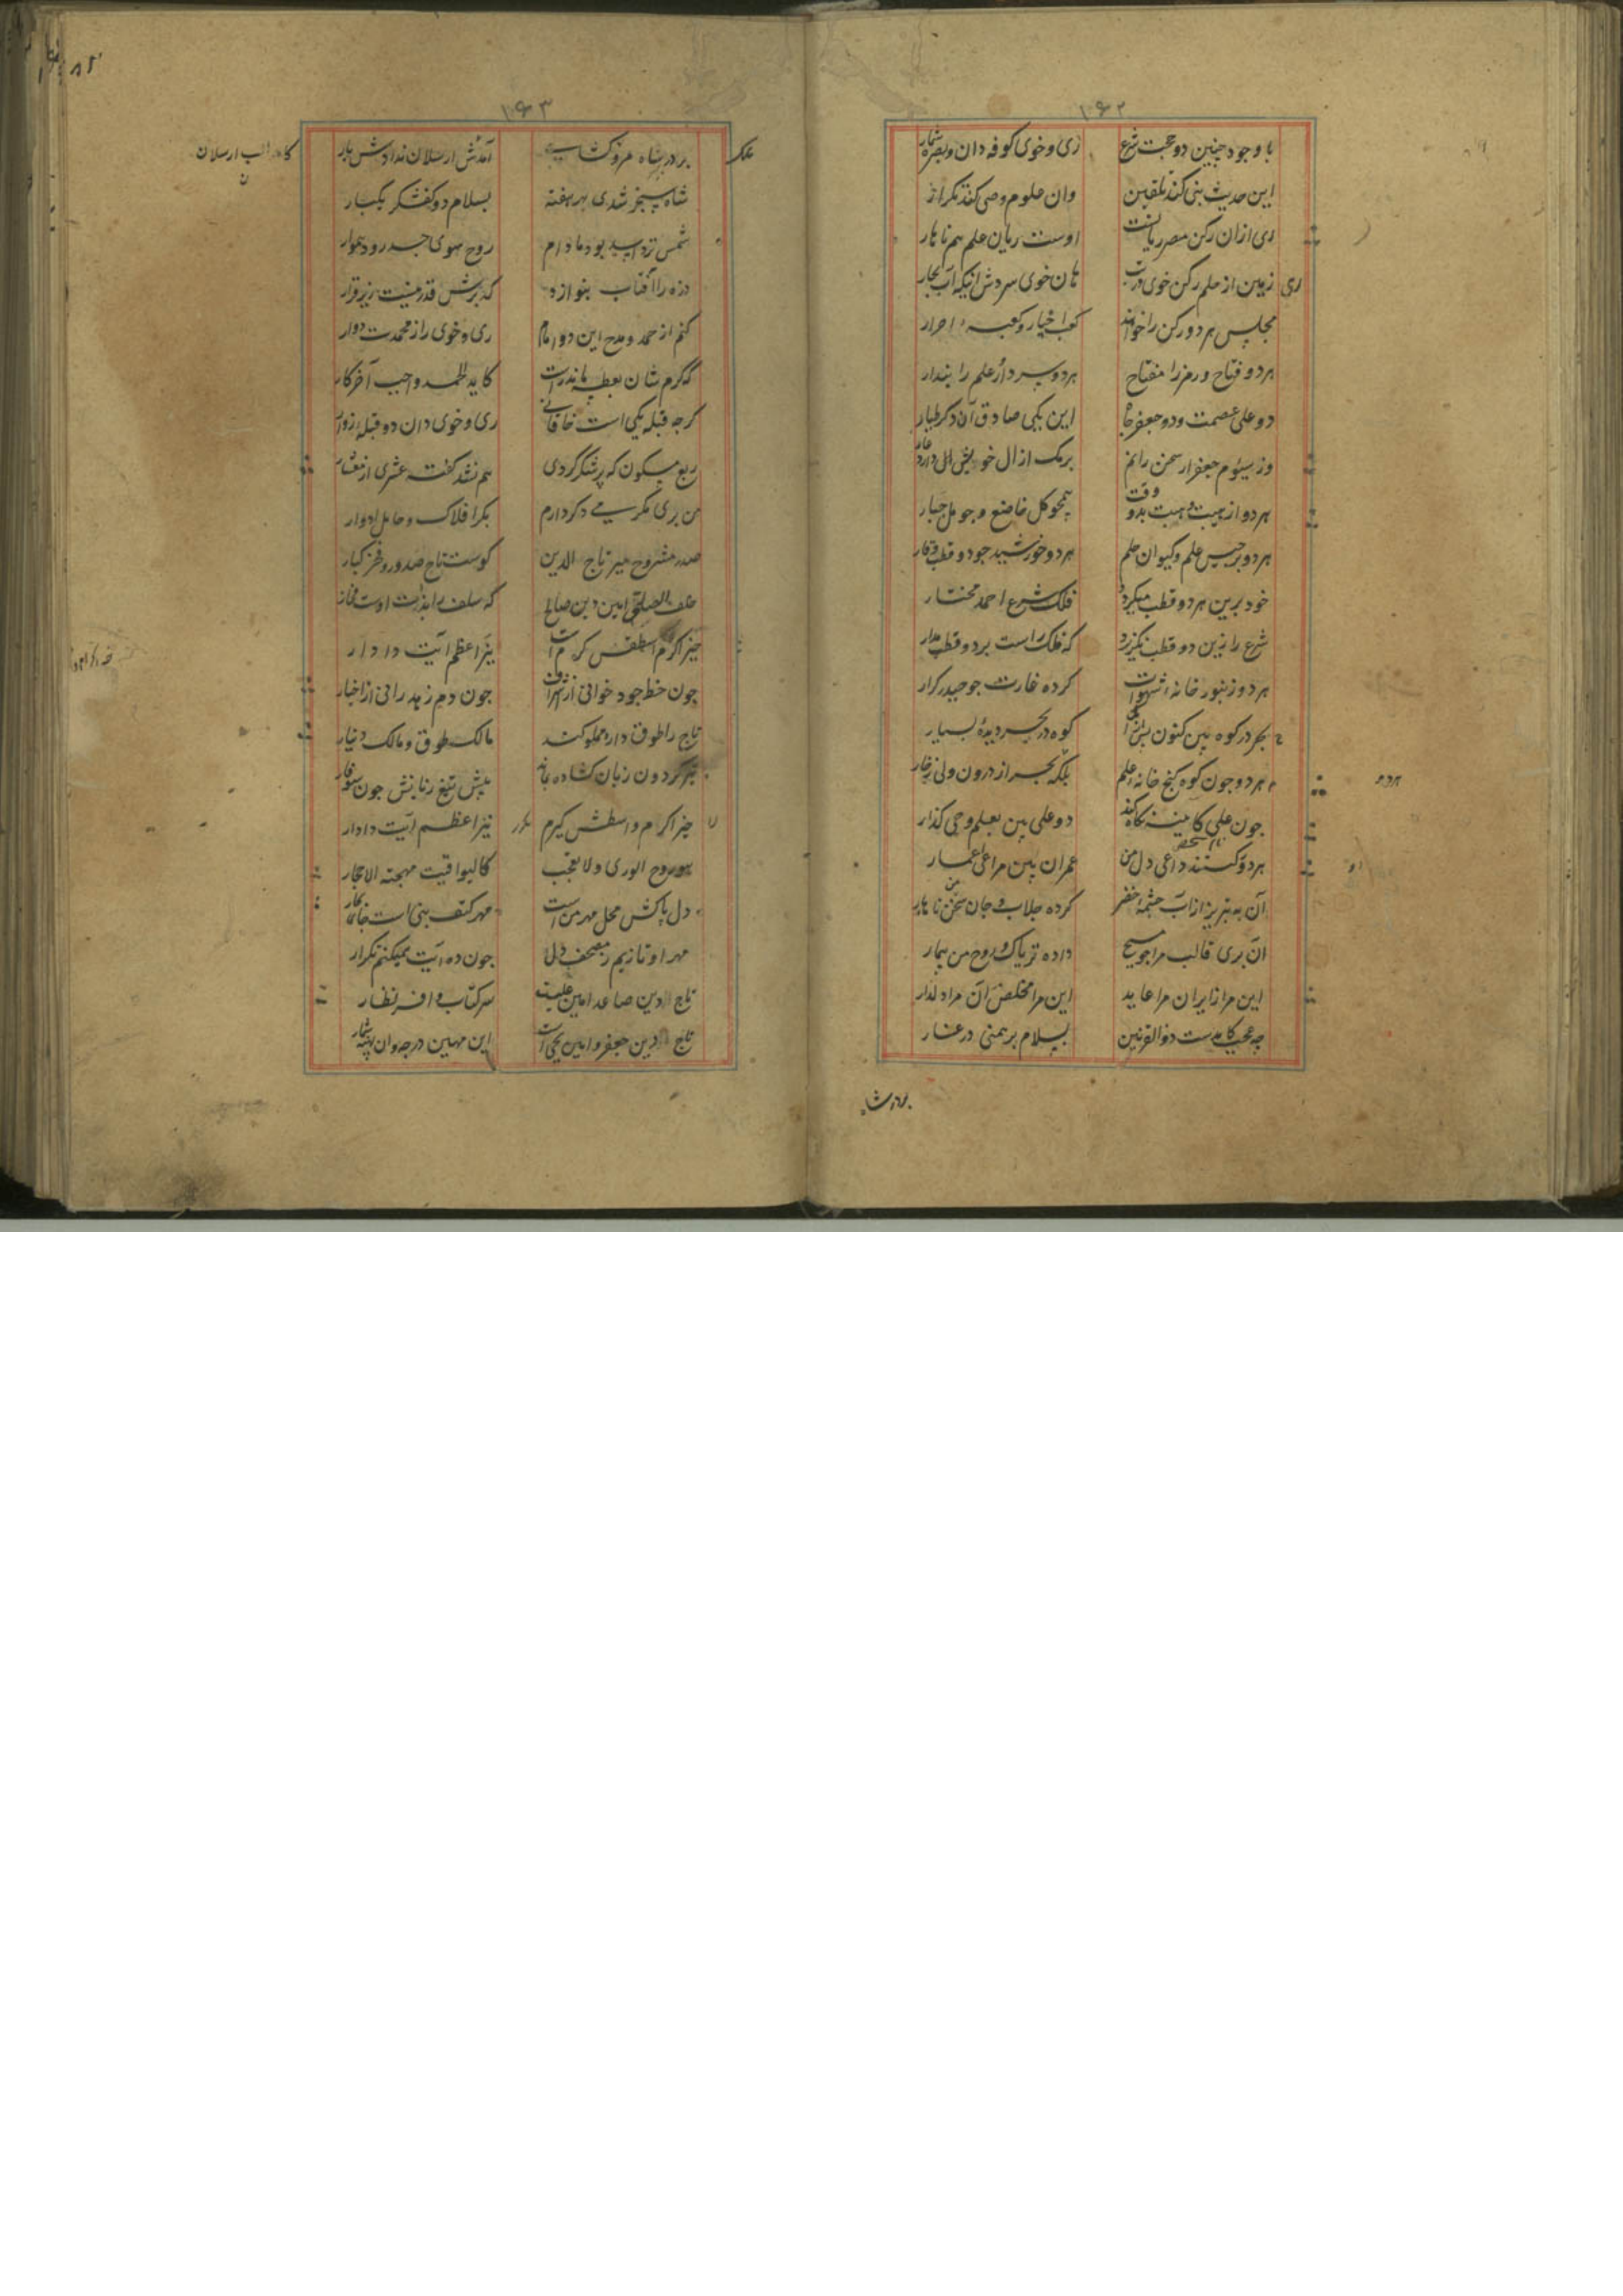 ۱۶۲
با وجود چنین دو حجت شرع زی و خوی کوفه دان و بصره شمار
این حدیث نبی کند تلقین وان علوم وصی کند تکرار
ری ازان رکن مصر ریانست اوست ریان علم هم ناهار
ری زمین از حلم رکن خوی
مجلس هر دو رکن را خوانند کعبه احرار
هر دو فتاح و رمز را مفتاح هر دو سردار علم را بندار
دو علی عصمت و دو جعفر جاه این یکی صادق آن دکر طیار
وز سیوم جعفر ار سخن رانم برمک از ال خویش
هر دو از هیبت و هبت بدو وقت همچو کل خاضع و جو مل جبار
هر دو برجیس علم و کیوان حلم هر دو خورشید جود و قطب وقار
خود برین هر دو قطب میکردد فلک شرع احمد مختار
شرع را زین دو قطب نکزیرد که فلک راست بر دو قطب مدار
هر دو زنبور خانه شهوات کرده غارت جو حیدر کرار
بحر در کوه بین کنون بس ازان کوه در بحر دیده بسیار
هر دو جون کوه کنج خانه علم بلکه بحر از درون ولی زخار
جون علی کاینه نکاه کند دو علی بین بعلم وحی کذار
هر دو کستند داعی دل من عمران بین مراعی عمار
آن به تبریز ازاب جشمه خضر کرده جلاب جان من ناهار
ان بری قالب مرا جو مسیح داده تریاک روح من بیمار
این مرا زایران مرا عاید این مرا مخلص آن مرا دلدار
چه عجب کامدست ذوالقرنین بسلام برهمنی در غار
بردرشاه
۱۶۳
بر در شاه مرو کشاسب آمدش ارسلان ندادش بار
کاه الب ارسلان
شاه سنجر شدی بهر هفته بسلام دو کفشکر یکبار
شمس نزد اسد بود مادام روح سوی جسد رود هموار
ذره را آفتاب بنوازد
کنم از حمد و مدح این دو امام ری و خوی را ز محمدت دوار
که کرم شان بعطسه ماندراست کاید الحمد واجب آخر کار
کرجه قبله یکی است خاقانی ری و خوی دان دو قبله زوار
ربع مسکون که برشکر کردی هم نشد کفته عشری از معشار
من بری مکرمی دکر دارم بکر افلاک و حامل ادوار
صدر مشروح میر تاج الدین کوست تاج صدور و فخر کبار
خلف الصالح امین دین صالح که سلف را بذات اوست فخار
حیز اکرم اسطقس کرم نیر اعظم آیت دادار
جون خط جود خوانی از اشراف جون دم زهد رانی از اخبار
تاج را طوق دار و مملوکند مالک طوق و مالک دینار
تیر کردون زبان کشاده بماند پیش تیغ زبانش جون سوفار
حیز اکرم و اسطقس کرم نیر اعظم آیت دادار
هو روح الوری ولا تعجب کالیواقیت مهجة الاحجار
دل پاکش محل مهر من است مهر کتف نبی است
مهر او تازیم ز مصحف دل جون ده آیت میکنم تکرار
تاج الدین صاعد امین علیست سر کتاب و افسر نظار
تاج الدین جعفر و امین یحی است این مهین درجه وان بهینه شمار